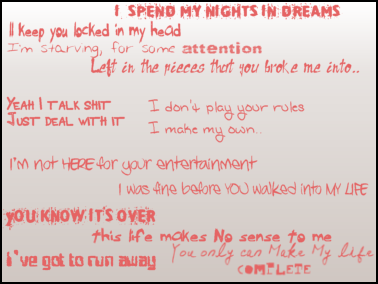 I SPEND MY NIGHTS IN DREAMS
I keep you locked in my head
I'm starving, for some attention
Left in the pieces that you broke me into..
YEAH I TALK SHIT
JUST DEAL WITH IT
I don't play your rules
I make my own..
I'M not HERE for your entertainment
I was fine before YOU walked into MY LIFE
YOU KNOW IT'S OVER
this life makes No sense to me
You only can Make My life
COMPLETE
I've got to run away